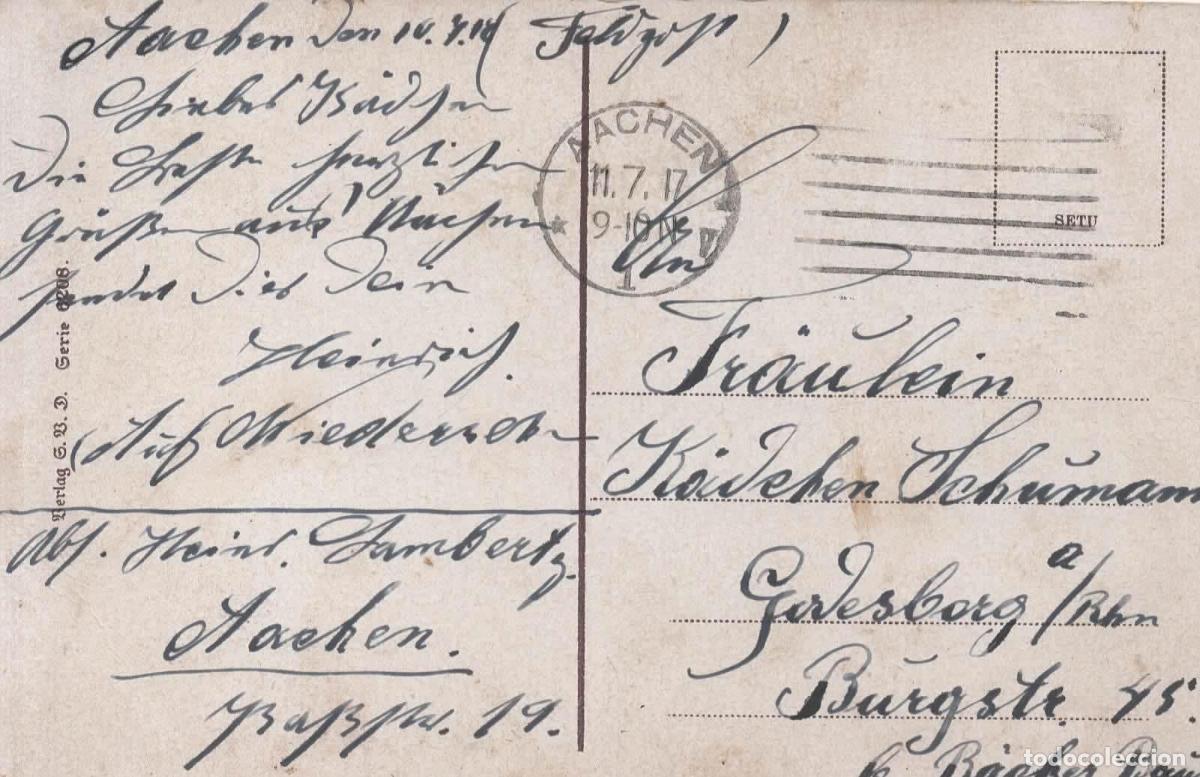 Aachen den 10.7.17 (Feldpost)
Liebes Kädchen
Die besten herzlichen
Grüße aus Aachen
sendet Dir Dein
Heinrich.
Auf Wiedersehn
Abs. Heinr. Lambertz
Aachen.
19.
Verlag S. V. D. Serie
AACHEN
11.7.17
9-10 N
1
SETU
An
Fräulein
Kädchen Schumann
Godesberg a/Rhn
Burgstr. 45.
b. Bäcker
todocoleccion